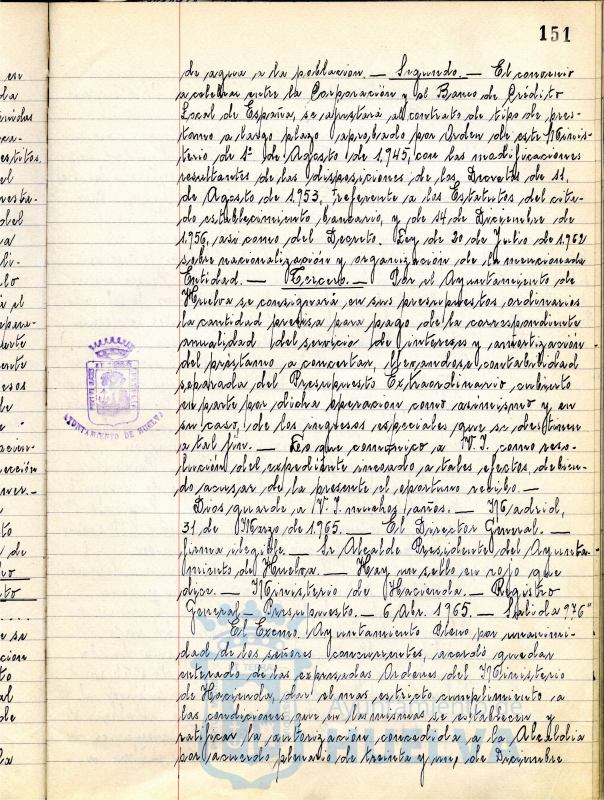 151
de agua a la población. — Segundo. — El convenio
a celebrar entre la Corporación y el Banco de Crédito
Local de España, se ajustará al contrato de tipo de prés-
tamo a largo plazo aprobado por Orden de este Minis-
terio de 1º de Agosto de 1.945, con las modificaciones
resultantes de las disposiciones de los Decretos de 11,
de Agosto de 1.953, referente a los Estatutos del cita-
do establecimiento bancario, y de 14 de Diciembre de
1.956, asi como del Decreto. Ley de 20 de Julio de 1.962
sobre nacionalización y organización de la mencionada
Entidad. — Tercero. — Por el Ayuntamiento de
Huelva se consignará en sus presupuestos ordinarios
la cantidad precisa para pago de la correspondiente
anualidad del servicio de intereses y amortización
del préstamo a concertar, llevandose contabilidad
separada del Presupuesto Extraordinario cubierto
en parte por dicha operación como asimismo y en
su caso, de los ingresos especiales que se destinen
a tal fin. — Lo que comunico a V.I. como reso-
lución del expediente incoado a tales efectos, debien-
do acusar de la presente el oportuno recibo. —
Dios guarde a V.I. muchos años. — Madrid,
31 de Marzo de 1.965. — El Director General. —
firma ilegible. — Sr. Alcalde Presidente del Ayunta-
miento de Huelva. — Hay un sello en rojo que
dice. — Ministerio de Hacienda. — Registro
General — Presupuesto. — 6 Abr. 1965. — Salida 976"
El Excmo. Ayuntamiento Pleno por unanimi-
dad de los señores concurrentes, acordó quedar
enterado de las expresadas Ordenes del Ministerio
de Hacienda, dar el mas estricto cumplimiento a
las condiciones que en las mismas se establecen y
ratificar la autorización concedida a la Alcaldia
por acuerdo plenario de treinta y uno de Diciembre
AYUNTAMIENTO DE HUELVA
Ayuntamiento de
HUELVA